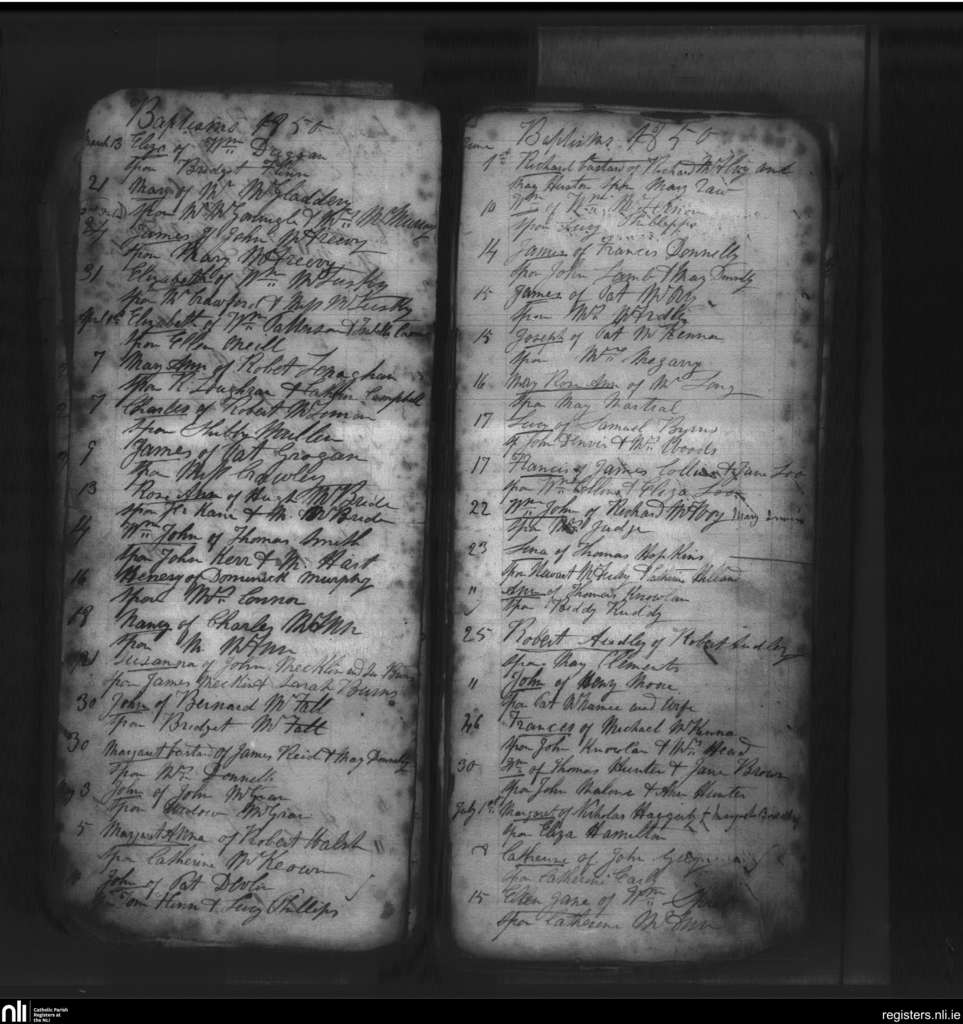 Baptisms 1850
March 13 Eliza of Wm Duggan
Upon Bridget Flinn
21 Mary of Mr McGladdery
Upon Mr McGonnigle & Mrs McMurray
27 James of John McGreevy
Upon Mary McGreevy
31 Elizabeth of Wm McLuskey
Upon Mr Crawford & Miss McLuskey
April 1st Elizabeth of Wm Patterson &
Upon Ellen Oneill
7 Mary Ann of Robert Lenaghan
Upon R Loughran & Cathrine Campbell
7 Charles of Robert
Upon
9 James of Pat Grogan
Upon Miss Crowley
13 Rose Ann of Hugh McBride
Upon Kane & M McBride
14 Wm John of Thomas Smith
Upon John Kerr & M. Hart
16 Henery of Dominick Murphy
Upon Mrs Connor
19 Nancy of Charles McAnn
Upon M McAnn
21 Susanna of John Mecklin and
Upon James & Sarah Burns
30 John of Bernard McFall
Upon Bridget McFall
30 Margaret bastard of James Reid & May Donnelly
Upon Mrs Donnelly
May 3 John of John McGran
Upon McGran
5 Margaret Anna of Robert Walsh
Upon Catherine McKeown
John of Pat Devlin
Flinn & Lucy Phillips
Baptisms 1850
June
1st Richard bastard of Richard McAvoy and
May Huston Upon Mary Law
10 Wm of Wm
Upon Lucy Phillips
14 James of Francis Donnelly
Upon John Lamb & May Donnelly
15 James of Pat
Upon Mrs
15 Joseph of Pat McKenna
Upon Mrs Megarry
16 May Rose Ann of Mr Long
Upon May Martial
17 Lucy of Samuel Byrns
John Denvir & Mrs Woods
17 Francis of James Collins & Jane
Upon Wm Collins & Eliza
22 Wm John of Richard McAvoy
Upon Mrs Judge
23 Lena of Thomas Hopkins
Upon Stewart & Catherine
" Ann of Thomas Knowlan
Upon Biddy Ruddy
25 Robert Audley of Robert Audley
Upon May Clements
" John of Henry Moore
Upon Pat and Wife
26 Frances of Michael McKenna
Upon John Knowlan & Mrs Head
30 Wm of Thomas Hunter & Jane Brown
Upon John Malone & Ann Hunter
July 1st Margaret of Nicholas Haggerty &
Upon Eliza Hamilton
8 Catherine of John
Upon Catherine
15 Ellen Jane of Wm
Upon Catherine McAnn
nli
Catholic Parish
Registers at
the NLI
registers.nli.ie